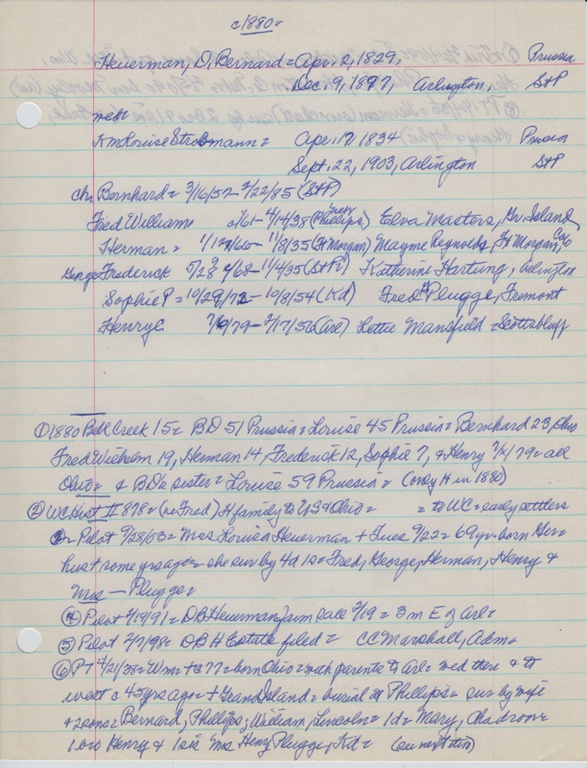 c/1880=
Heuerman, D. Bernard = Apr. 2, 1829, Prussia
Dec. 9, 1897, Arlington, StP
wed =
Louise Strobmann = Apr. 17 1834 Prussia
Sept. 22, 1903, Arlington StP
ch: Bernhard = 3/16/57 - 2/22/85 (StP)
Fred William = 2/61 - 4/14/38 (Phillips) Elva Masters, Gr. Island
Herman = 1/12/66 - 11/8/35 (Ft Morgan) Mayme Reynolds, Ft Morgan, Co
George Frederick 5/28/68 - 11/4/35 (StP) Katherine Hartung, Arlington
Sophie P = 10/29/72 - 10/8/54 (Kd) Fred H Plugge, Fremont
Henry C 7/9/79 - 2/17/56 (Arl) Lottie Mansfield = Scottsbluff
① 1880 Bell Creek 15 = BD 51 Prussia = Louise 45 Prussia = Bernhard 23, Ohio
Fred Wilhelm 19, Herman 14, Frederick 12, Sophie 7, & Henry 7/12/79 = all
Ohio = & BD's sister = Louise 59 Prussia = (only H in 1880)
② WC Hist II 878 = (re Fred) H family to Ohio = = to WC = early settlers
③ Pilot 9/28/03 = Mrs Louisa Heuerman + Tues 9/22 = 69 yr = born Ger =
hus + some yrs ago = she sur by 4d 1s = Fred, George, Herman, Henry &
Mrs — Plugge =
④ Pilot 2/19/91 = DB Heuerman farm sale 2/19 = 3 m E of Arl =
⑤ Pilot 2/7/98 = DB H Estate filed = CC Marshall, Adm =
⑥ PT 4/21/38 = Wm + @ 77 = born Ohio = with parents to Arl = wed there & to
west c 45 yrs ago = + Grand Island = burial at Phillips = sur by wife
& 2 sons = Bernard, Phillips; William, Lincoln = 1d = Mary, Chadron =
1 bro Henry & 1 sis Mrs Henry Plugge, Kd = (cu next item)